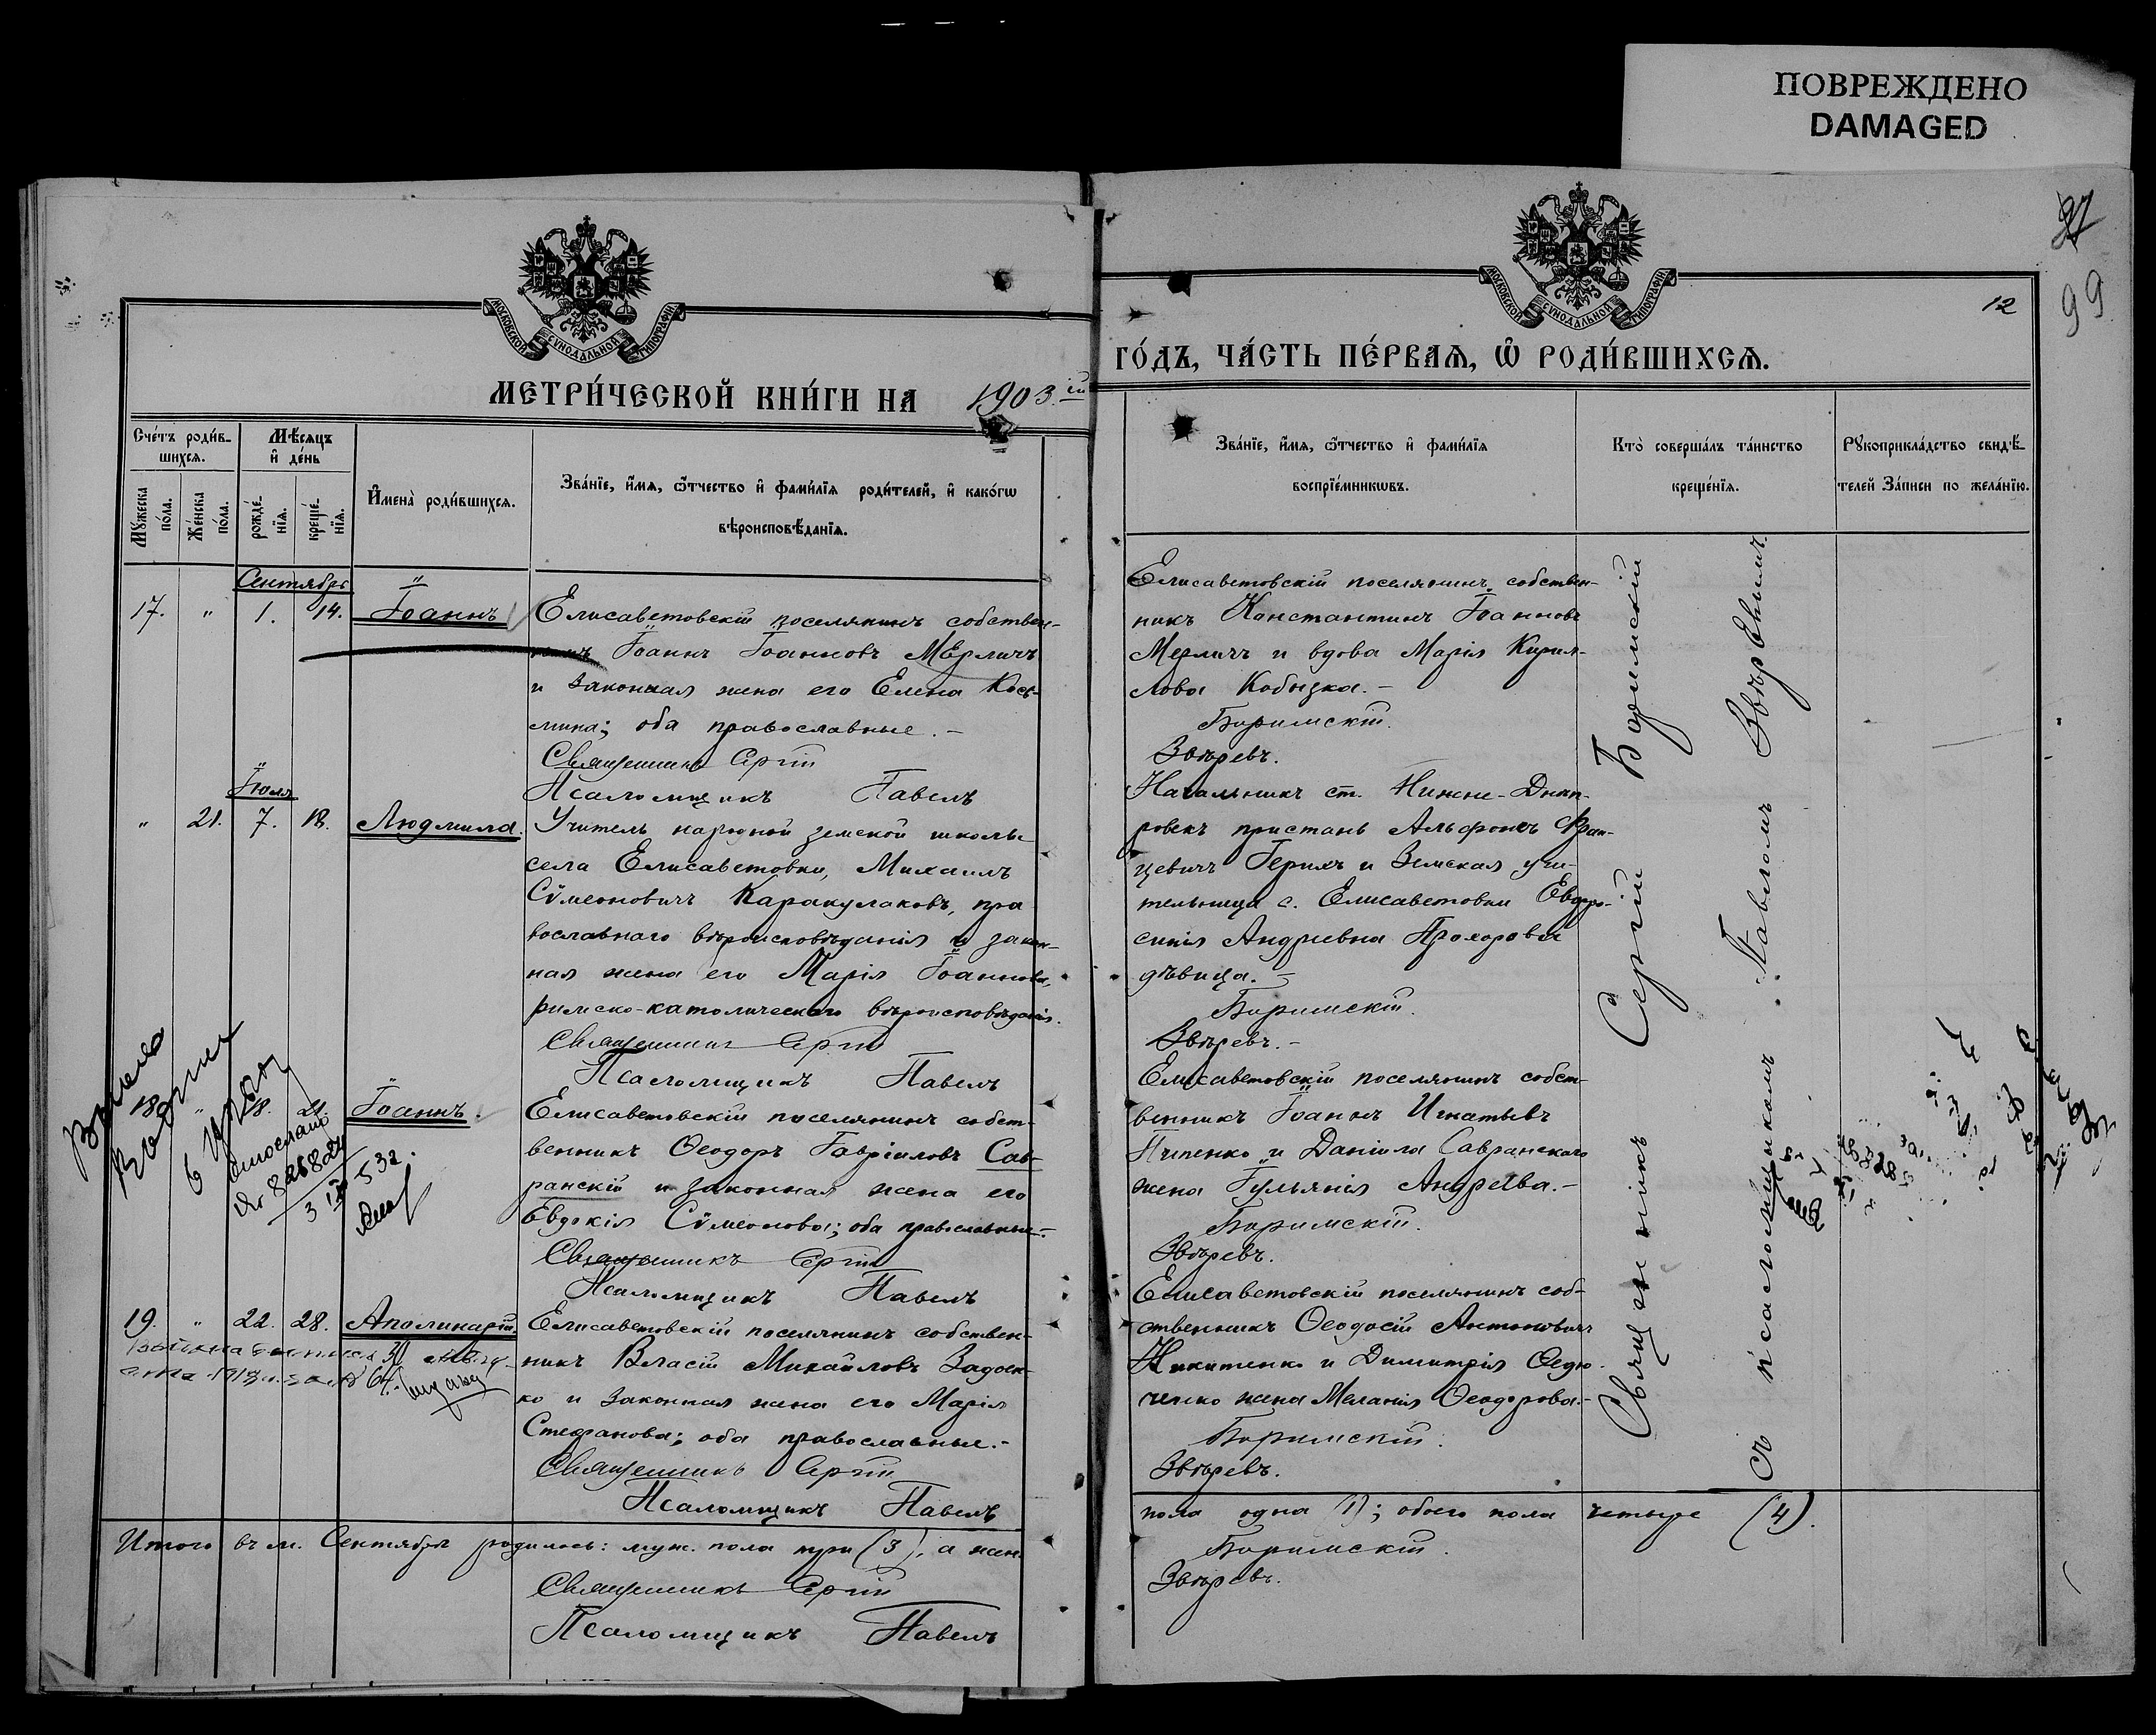 ПОВРЕЖДЕНО
DAMAGED
99
12
МОСКОВСКОЙ СѴНОДАЛЬНОЙ ТИПОГРАФІИ
МОСКОВСКОЙ СѴНОДАЛЬНОЙ ТИПОГРАФІИ
МЕТРИ́ЧЕСКОЙ КНИ́ГИ НА 1903.й
ГО́ДЪ, ЧА́СТЬ ПЕ́РВАѦ, Ѽ РОДИ́ВШИХСѦ.
Сче́тъ роди́в-
шихсѧ.
Мꙋ́жеска по́ла.
Же́нска по́ла.
Мѣ́сѧцъ и҆ де́нь
рожде́-
нїѧ.
креще́-
нїѧ.
И҆мена̀ роди́вшихсѧ.
Зва́нїе, и҆́мѧ, ѻ҆́тчество и҆ фами́лїѧ роди́телей, и҆ како́гѡ
вѣроисповѣ́данїѧ.
Зва́нїе, и҆́мѧ, ѻ҆́тчество и҆ фами́лїѧ
воспрїе́мникѡвъ.
Кто̀ соверша́лъ та́инство
креще́нїѧ.
Рꙋкоприкла́дство свидѣ́-
телей за́писи по жела́нїю.
Сентябрь
17. " 1. 14. Іоаннъ
Елисаветовскій поселянинъ собствен-
никъ Іоаннъ Іоанновъ Мерличъ
и законная жена его Елена Кось-
мина; оба православные.-
Священникъ Сергій
Псаломщикъ Павелъ
Елисаветовскій поселянинъ собствен-
никъ Константинъ Іоанновъ
Мерличъ и вдова Марія Кирил-
лова Кобызка.-
Боримскій.
Звѣревъ.
Іюля
" 21. 7. 18. Людмила.
Учитель народной земской школы
села Елисаветовки, Михаилъ
Сѵмеоновичъ Каракулаковъ, пра
вославнаго вѣроисповѣданія и закон-
ная жена его Марія Іоаннова,
римско-католическаго вѣроисповѣданія.
Священникъ Сергій
Псаломщикъ Павелъ
Начальникъ ст. Нижне-Днѣп-
ровскъ пристань Альфонсъ Фран-
цевичъ и Земская учи-
тельница с. Елисаветовки Евфро-
синія Андреевна Прохорова
дѣвица.-
Боримскій.
Звѣревъ.-
18. " 18. 21. Іоаннъ.
Елисаветовскій поселянинъ собст-
венникъ Ѳеодоръ Гавріиловъ Сав-
ранскій и законная жена его
Евдокія Сѵмеонова; оба православные.-
Священникъ Сергій
Псаломщикъ Павелъ
Елисаветовскій поселянинъ собст-
венникъ Іоаннъ Игнатьевъ
Пипенко и Даніила Савранскаго
жена Іульянія Андреева.-
Боримскій.
Звѣревъ.
19. " 22. 28. Аполинарій.
Елисаветовскій поселянинъ собствен-
никъ Власій Михайловъ Задоен-
ко и законная жена его Марія
Стефанова; оба православные.-
Священникъ Сергій
Псаломщикъ Павелъ
Елисаветовскій поселянинъ соб-
ственникъ Ѳеодосій Антоновичъ
Никитенко и Димитрія Ѳедо-
ченко жена Меланія Ѳеодорова.-
Боримскій.
Звѣревъ.
Священникъ Сергій Боримскій
съ псаломщикомъ Павломъ Звѣревымъ.
Итого въ м. Сентябрѣ родилось: муж. пола три (3), а жен.
пола одна (1); обоего пола четыре (4).
Священникъ Сергій
Боримскій.
Псаломщикъ Павелъ
Звѣревъ.